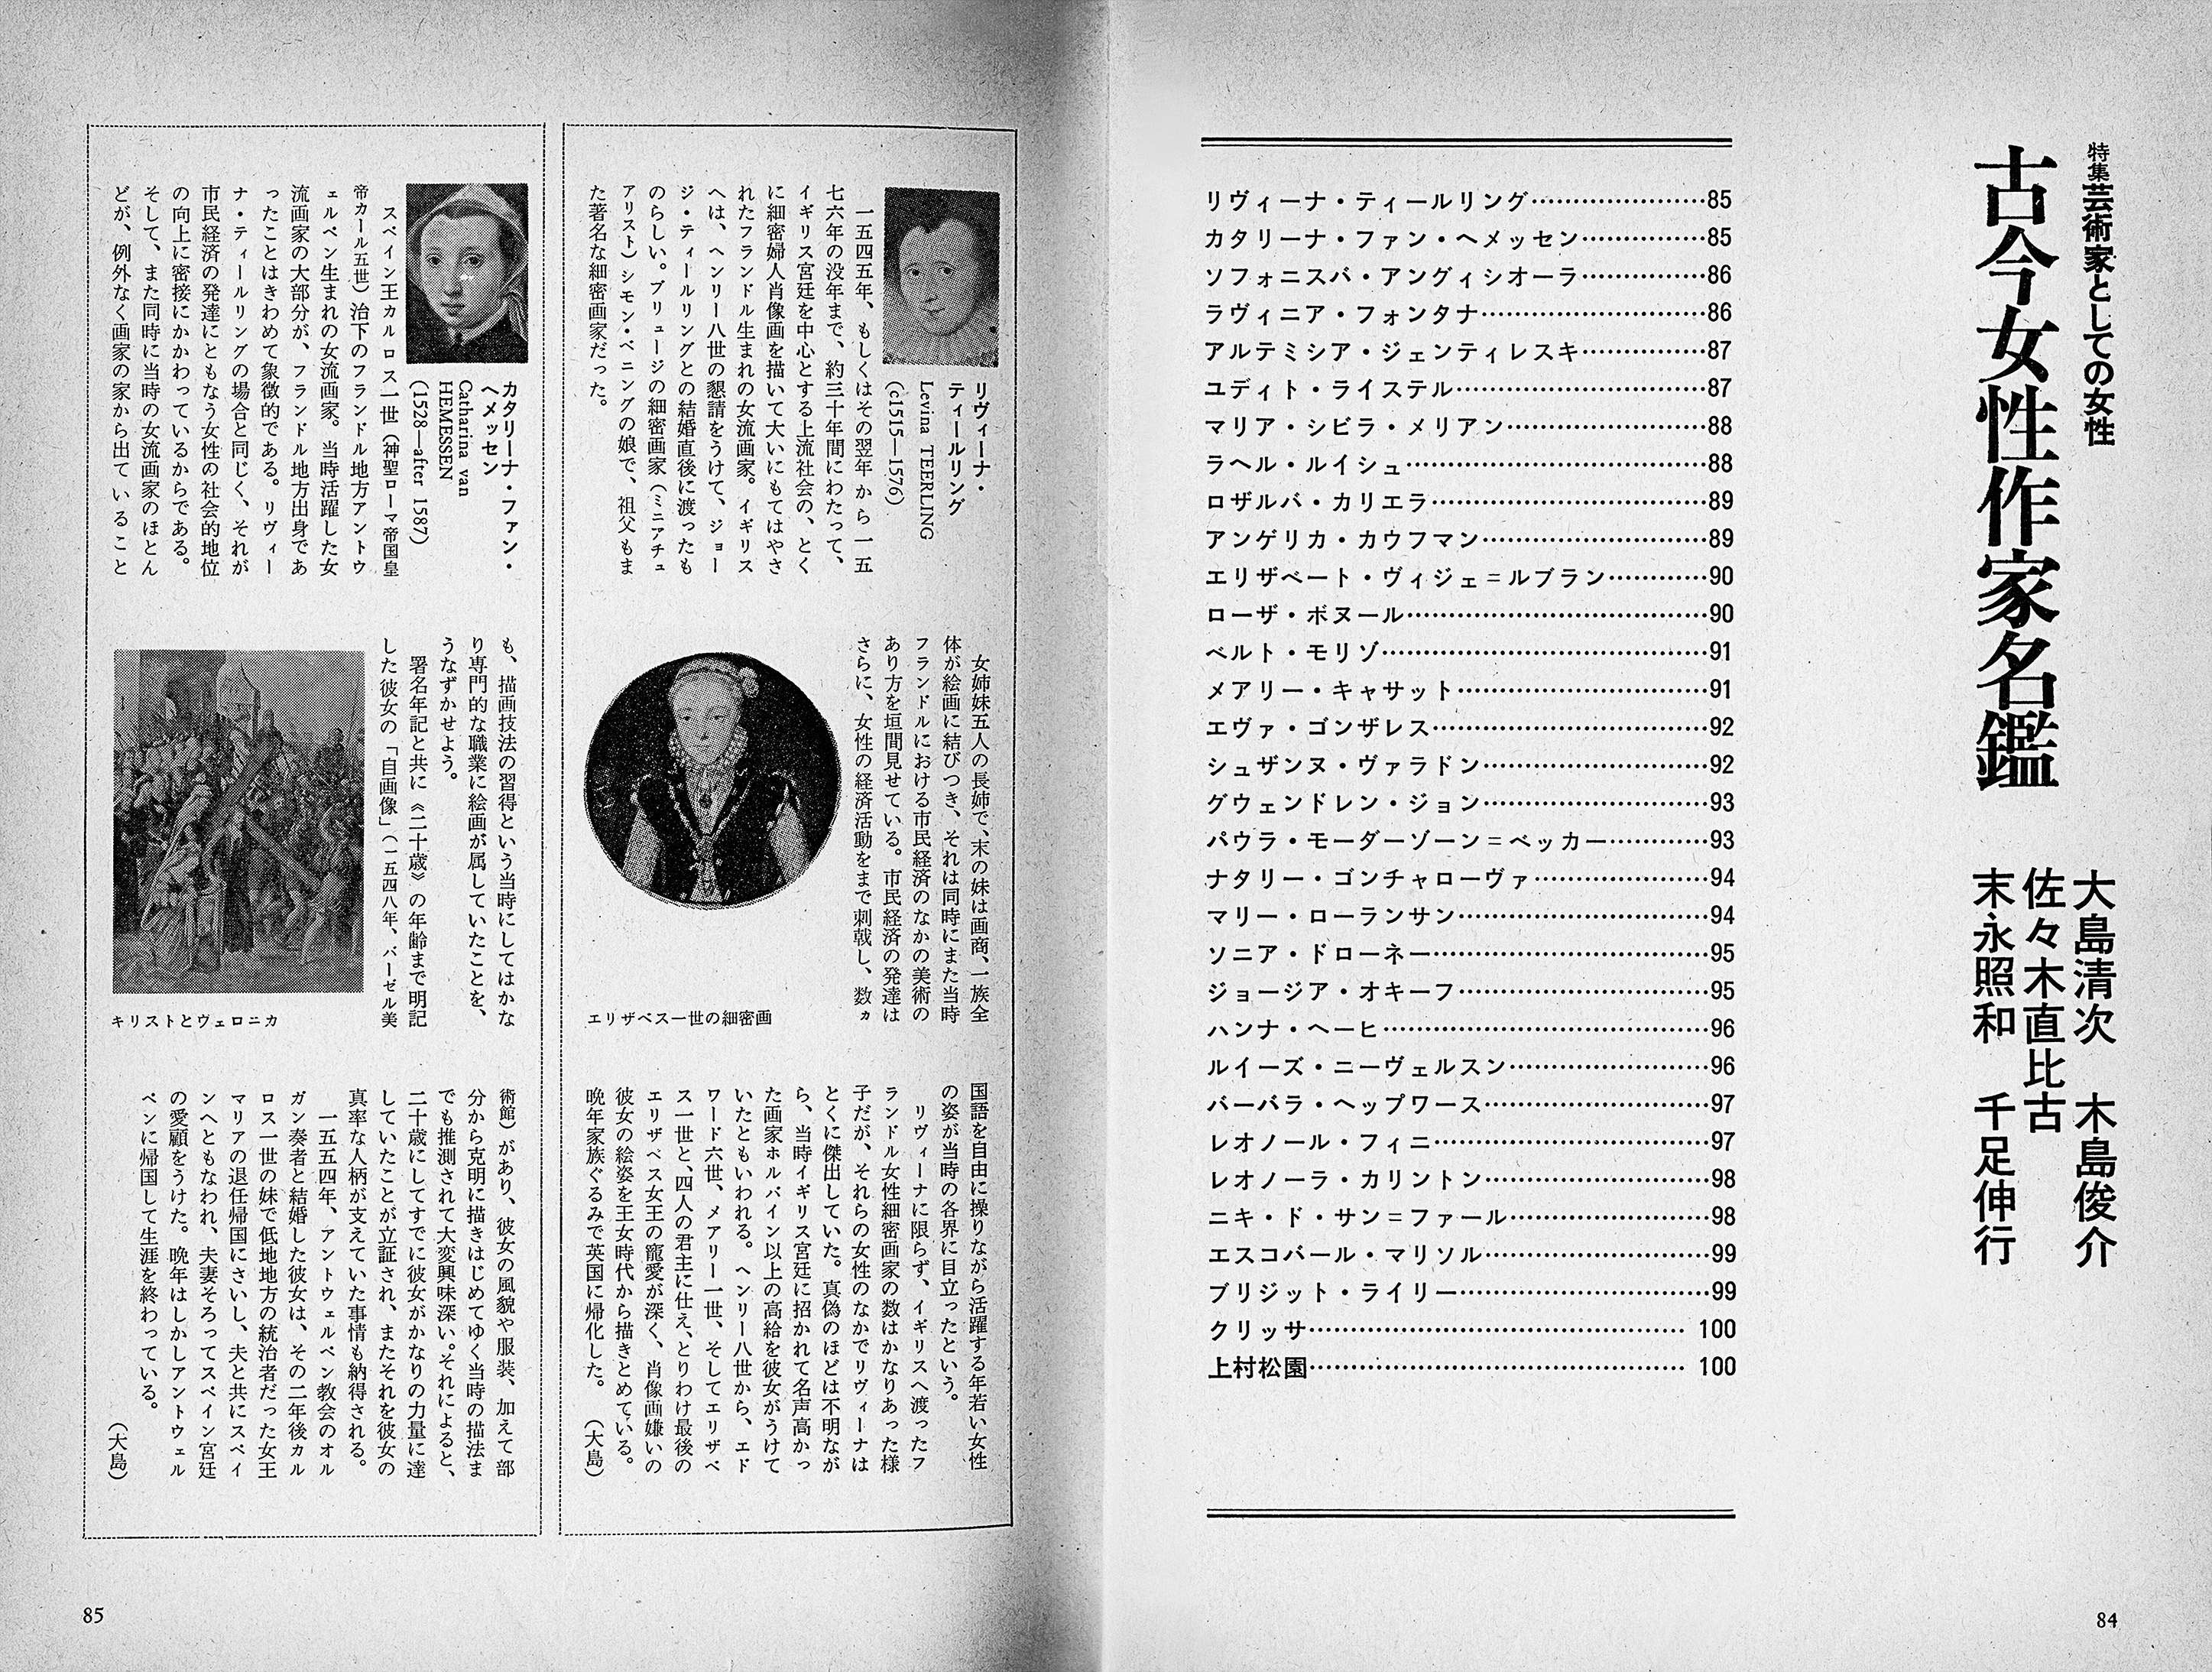 特集芸術家としての女性
古今女性作家名鑑
大島清次　木島俊介
佐々木直比古
末永照和　千足伸行
リヴィーナ・ティールリング…………………85
カタリーナ・ファン・ヘメッセン……………85
ソフォニスバ・アングィシオーラ……………86
ラヴィニア・フォンタナ………………………86
アルテミシア・ジェンティレスキ……………87
ユディト・ライステル…………………………87
マリア・シビラ・メリアン……………………88
ラヘル・ルイシュ………………………………88
ロザルバ・カリエラ……………………………89
アンゲリカ・カウフマン………………………89
エリザベート・ヴィジェ＝ルブラン…………90
ローザ・ボヌール………………………………90
ベルト・モリゾ…………………………………91
メアリー・キャサット…………………………91
エヴァ・ゴンザレス……………………………92
シュザンヌ・ヴァラドン………………………92
グウェンドレン・ジョン………………………93
パウラ・モーダーゾーン＝ベッカー…………93
ナタリー・ゴンチャローヴァ…………………94
マリー・ローランサン…………………………94
ソニア・ドローネー……………………………95
ジョージア・オキーフ…………………………95
ハンナ・ヘーヒ…………………………………96
ルイーズ・ニーヴェルスン……………………96
バーバラ・ヘップワース………………………97
レオノール・フィニ……………………………97
レオノーラ・カリントン………………………98
ニキ・ド・サン＝ファール……………………98
エスコバール・マリソル………………………99
ブリジット・ライリー…………………………99
クリッサ………………………………………100
上村松園………………………………………100
84
リヴィーナ・
ティールリング
Levina TEERLING
(c1515—1576)
一五四五年、もしくはその翌年から一五
七六年の没年まで、約三十年間にわたって、
イギリス宮廷を中心とする上流社会の、とく
に細密婦人肖像画を描いて大いにもてはやさ
れたフランドル生まれの女流画家。イギリス
へは、ヘンリー八世の懇請をうけて、ジョー
ジ・ティールリングとの結婚直後に渡ったも
のらしい。ブリュージの細密画家（ミニアチュ
アリスト）シモン・ベニングの娘で、祖父もま
た著名な細密画家だった。
女姉妹五人の長姉で、末の妹は画商、一族全
体が絵画に結びつき、それは同時にまた当時
フランドルにおける市民経済のなかの美術の
あり方を垣間見せている。市民経済の発達は
さらに、女性の経済活動をまで刺戟し、数ヵ
エリザベス一世の細密画
国語を自由に操りながら活躍する年若い女性
の姿が当時の各界に目立ったという。
リヴィーナに限らず、イギリスへ渡ったフ
ランドル女性細密画家の数はかなりあった様
子だが、それらの女性のなかでリヴィーナは
とくに傑出していた。真偽のほどは不明なが
ら、当時イギリス宮廷に招かれて名声高かっ
た画家ホルバイン以上の高給を彼女がうけて
いたともいわれる。ヘンリー八世から、エド
ワード六世、メアリー一世、そしてエリザベ
ス一世と、四人の君主に仕え、とりわけ最後の
エリザベス女王の寵愛が深く、肖像画嫌いの
彼女の絵姿を王女時代から描きとめている。
晩年家族ぐるみで英国に帰化した。　（大島）
カタリーナ・ファン・
ヘメッセン
Catharina van
HEMESSEN
(1528—after 1587)
スペイン王カルロス一世（神聖ローマ帝国皇
帝カール五世）治下のフランドル地方アントウ
ェルペン生まれの女流画家。当時活躍した女
流画家の大部分が、フランドル地方出身であ
ったことはきわめて象徴的である。リヴィー
ナ・ティールリングの場合と同じく、それが
市民経済の発達にともなう女性の社会的地位
の向上に密接にかかわっているからである。
そして、また同時に当時の女流画家のほとん
どが、例外なく画家の家から出ていること
も、描画技法の習得という当時にしてはかな
り専門的な職業に絵画が属していたことを、
うなずかせよう。
署名年記と共に《二十歳》の年齢まで明記
した彼女の「自画像」（一五四八年、バーゼル美
キリストとヴェロニカ
術館）があり、彼女の風貌や服装、加えて部
分から克明に描きはじめてゆく当時の描法ま
でも推測されて大変興味深い。それによると、
二十歳にしてすでに彼女がかなりの力量に達
していたことが立証され、またそれを彼女の
真率な人柄が支えていた事情も納得される。
一五五四年、アントウェルペン教会のオル
ガン奏者と結婚した彼女は、その二年後カル
ロス一世の妹で低地地方の統治者だった女王
マリアの退任帰国にさいし、夫と共にスペイ
ンへともなわれ、夫妻そろってスペイン宮廷
の愛顧をうけた。晩年はしかしアントウェル
ペンに帰国して生涯を終わっている。
（大島）
85